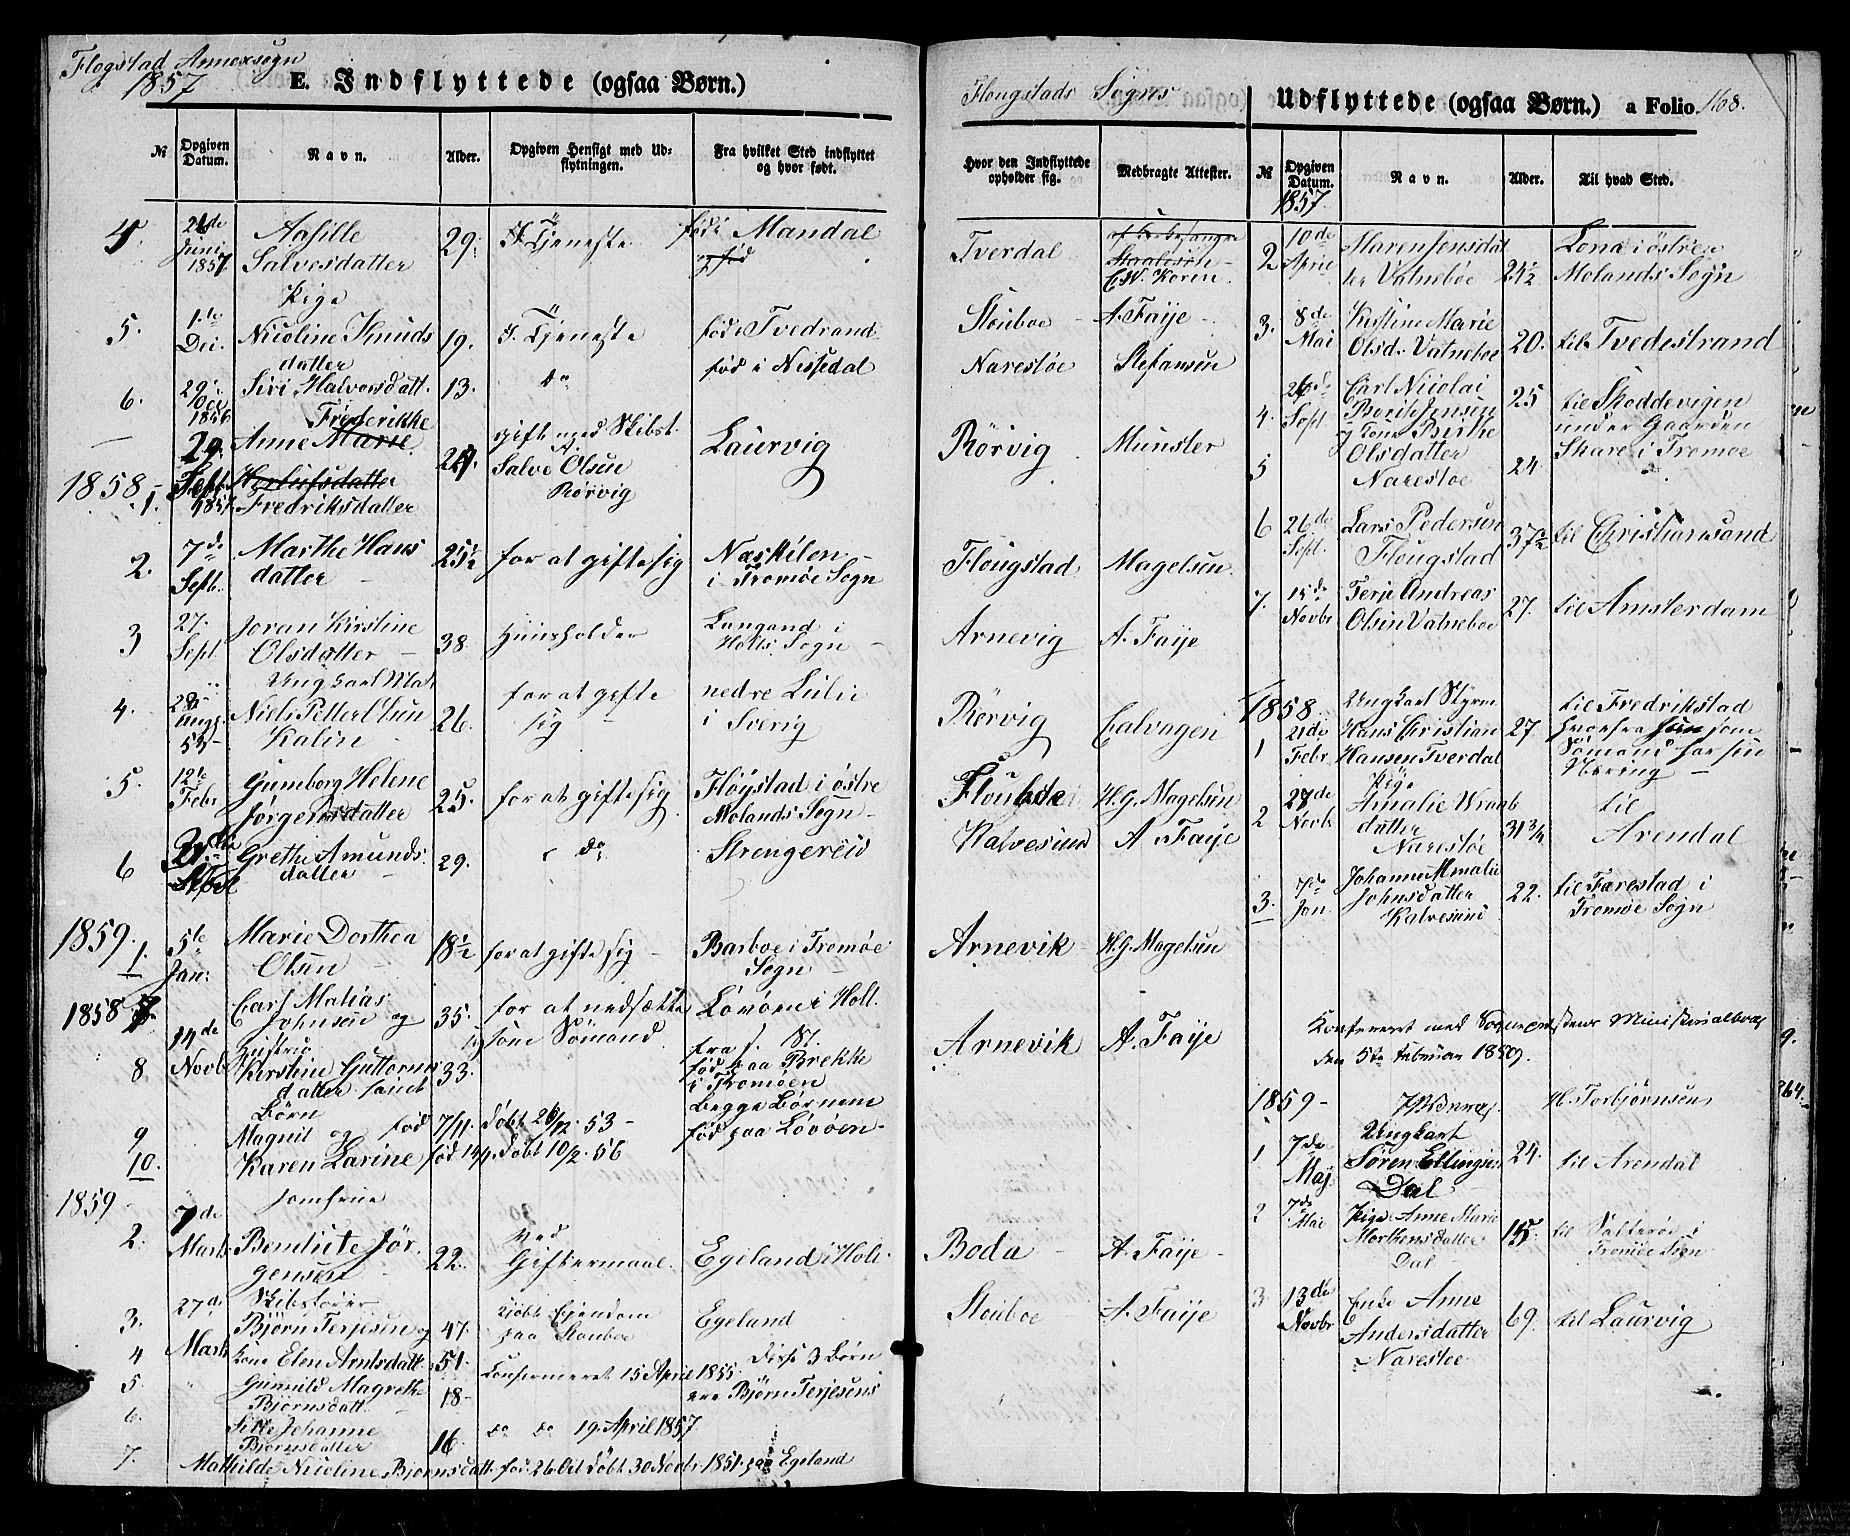 Flogstad Annexsogn
1857
E. Indflyttede (ogsaa Børn.)
№
Opgiven Datum.
Navn.
Alder.
Opgiven Hensigt med Udflytningen.
Fra hvilket Sted indflyttet og hvor født.
4. 26de Juni 1857 Aasille 29. I Tjeneste føde Mandal
Salvesdatter og fød
Pige
5. 1ste Dec. Nicoline Knuds 19. I Tjeneste fød i Tvedrand
datter
6. 29/Oct 1856 Siri Halvorsdatt. 13. do fød i Nissedal
Frederikke
29. Sept. 1857 Anne Marie gift med Skibst. Laurvig
1858 1. Fredriksdatter 24. Salve Olsen
Rørvig
2. 7de Sept. Marthe Hans 25½ for at gifte sig Næskilen
datter i Tromøe Sogn
3 27. Sept Joran Kirstine 38 Huusholder Langand i
Olsdatter Holts Sogn
Ungkarl Mat.
4. 28 Aug. 53 Niels Petter Olsen 26. for at gifte nedre Lulie
Kalin sig i Sverig
5. 12te Febr Gunborg Helene 25. for at gifte sig Fløgstad i østre
Jørgensdatter Molands Sogn
6 Grethe Amunds 29. do Strengereid
datter
1859. 1. 5te Jan: Marie Dorthea 18½ for at gifte sig Barboe i Tromøe
Olsen Sogn
1858 7. 14de Novbr Carl Matias 35. for at nedsætte Løvøen i Holt.
Johnsen og sig som Sømand fra f. St.
Hustrue
8 Kirstine Guttorms 33. fød paa Brekke
datter samt i Tromøen
Børn begge Børnene
9 Magnil og fød 7/11. døbt 26/12 53 fød paa Løvøen
10. Karen Larine, fød 14/1. døbt 10/2. 56
1859 Jomfrue
2. 7de Marts Bendicte Jør 22. Ved Egeland i Holt
gensen Giftermaal
Skibsfører
3. 27de Marts Bjørn Terjesen og 47. kjøbt Ejendom Egeland
paa Stouboe
4 Kone Elen Arntsdatt. 51. Disse 3 Børn
5. Gunnild Magrethe 18 Confirmeret 15 April 1855 ere Bjørn Terjesens
Bjørnsdatt.
6. Sille Johanne 16 do do 19. April 1857
Bjørnsdatter
7. Mathilde Nicoline Bjørnsdatt. fød 26 Oct døbt 30 Novbr 1851 paa Egeland
Flougstads Sogns
Udflyttede (ogsaa Børn.) a Folio 168.
Hvor den Indflyttede opholder sig.
Medbragte Attester.
№
Opgiven Datum.
Navn.
Alder.
Til hvad Sted.
Tverdal
C. W. Koren
Stouboe A. Faÿe
Narestøe Stefansen
Rørvig Munster
Flougstad Magelsen
Arnevig A. Faÿe
Rørvig Calvagen
Stouboe H. G. Magelsen
Kalvesund A Faÿe
Arnevik H. G. Magelsen
Arnevik A. Faÿe
Boda A. Faÿe
Stouboe A. Faÿe
1857
2 10de April Maren Jensdat 21½ Lona i østre
ter Vatneboe Molands Sogn
3. 8de Mai Kirstine Marie 20. til Tvedestrand
Olsd. Vatneboe
4. 26de Sept. Carl Nicolai 25 til Skoddevigen
Berit Jensen under Gaarden
og kone Birthe Skare i Tromøe
5 Olsdatter 24
Narestøe
6 26de Sept. Lars Pedersen 37½ til Christiansand
Flougstad
7. 15de Novbr Terje Andreas 27. til Amsterdam
Olsen Vatneboe
1858. Ungkarl Styrm. til Fredrikstad
1 21de Febr Hans Christian 27. hvorfra han som
Hansen Tverdal Sømand har sin
Næring
Pige
2 28de Novb Amalie Wraab 31¾ til
datter Arendal
Narestøe
3. 7de Jan. Johanne Amalie 22. til Færestad i
Johnsdatter Tromøe Sogn
Kalvesund
Konfereret med Sogneprestens Ministerialbog
den 5te Februar 1859.
H. Torbjørnsen
1859
Ungkarl
1 7de Maj Søren Ellingsen 24. til Arendal
Dal
2 7de Mai Pige Anne Marie 15. til Salterøe i
Morthensdatter Tromøe Sogn
Dal
3 13de Novbr Enke Anne 69. til Laurvig
Andersdatter
Narestøe